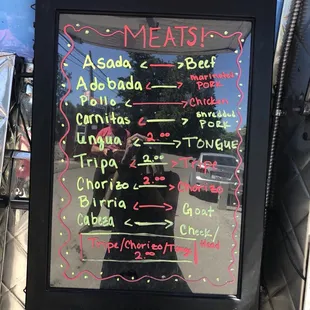 MEATS!
Asada Beef
Adobada marinated PORK
Pollo Chicken
Carnitas shredded PORK
Lengua 2.00 TONGUE
Tripa 2.00 Tripe
Chorizo 2.00 Chorizo
Birria Goat
Cabeza Cheek/
Head
Tripe/Chorizo/Tong
2.00